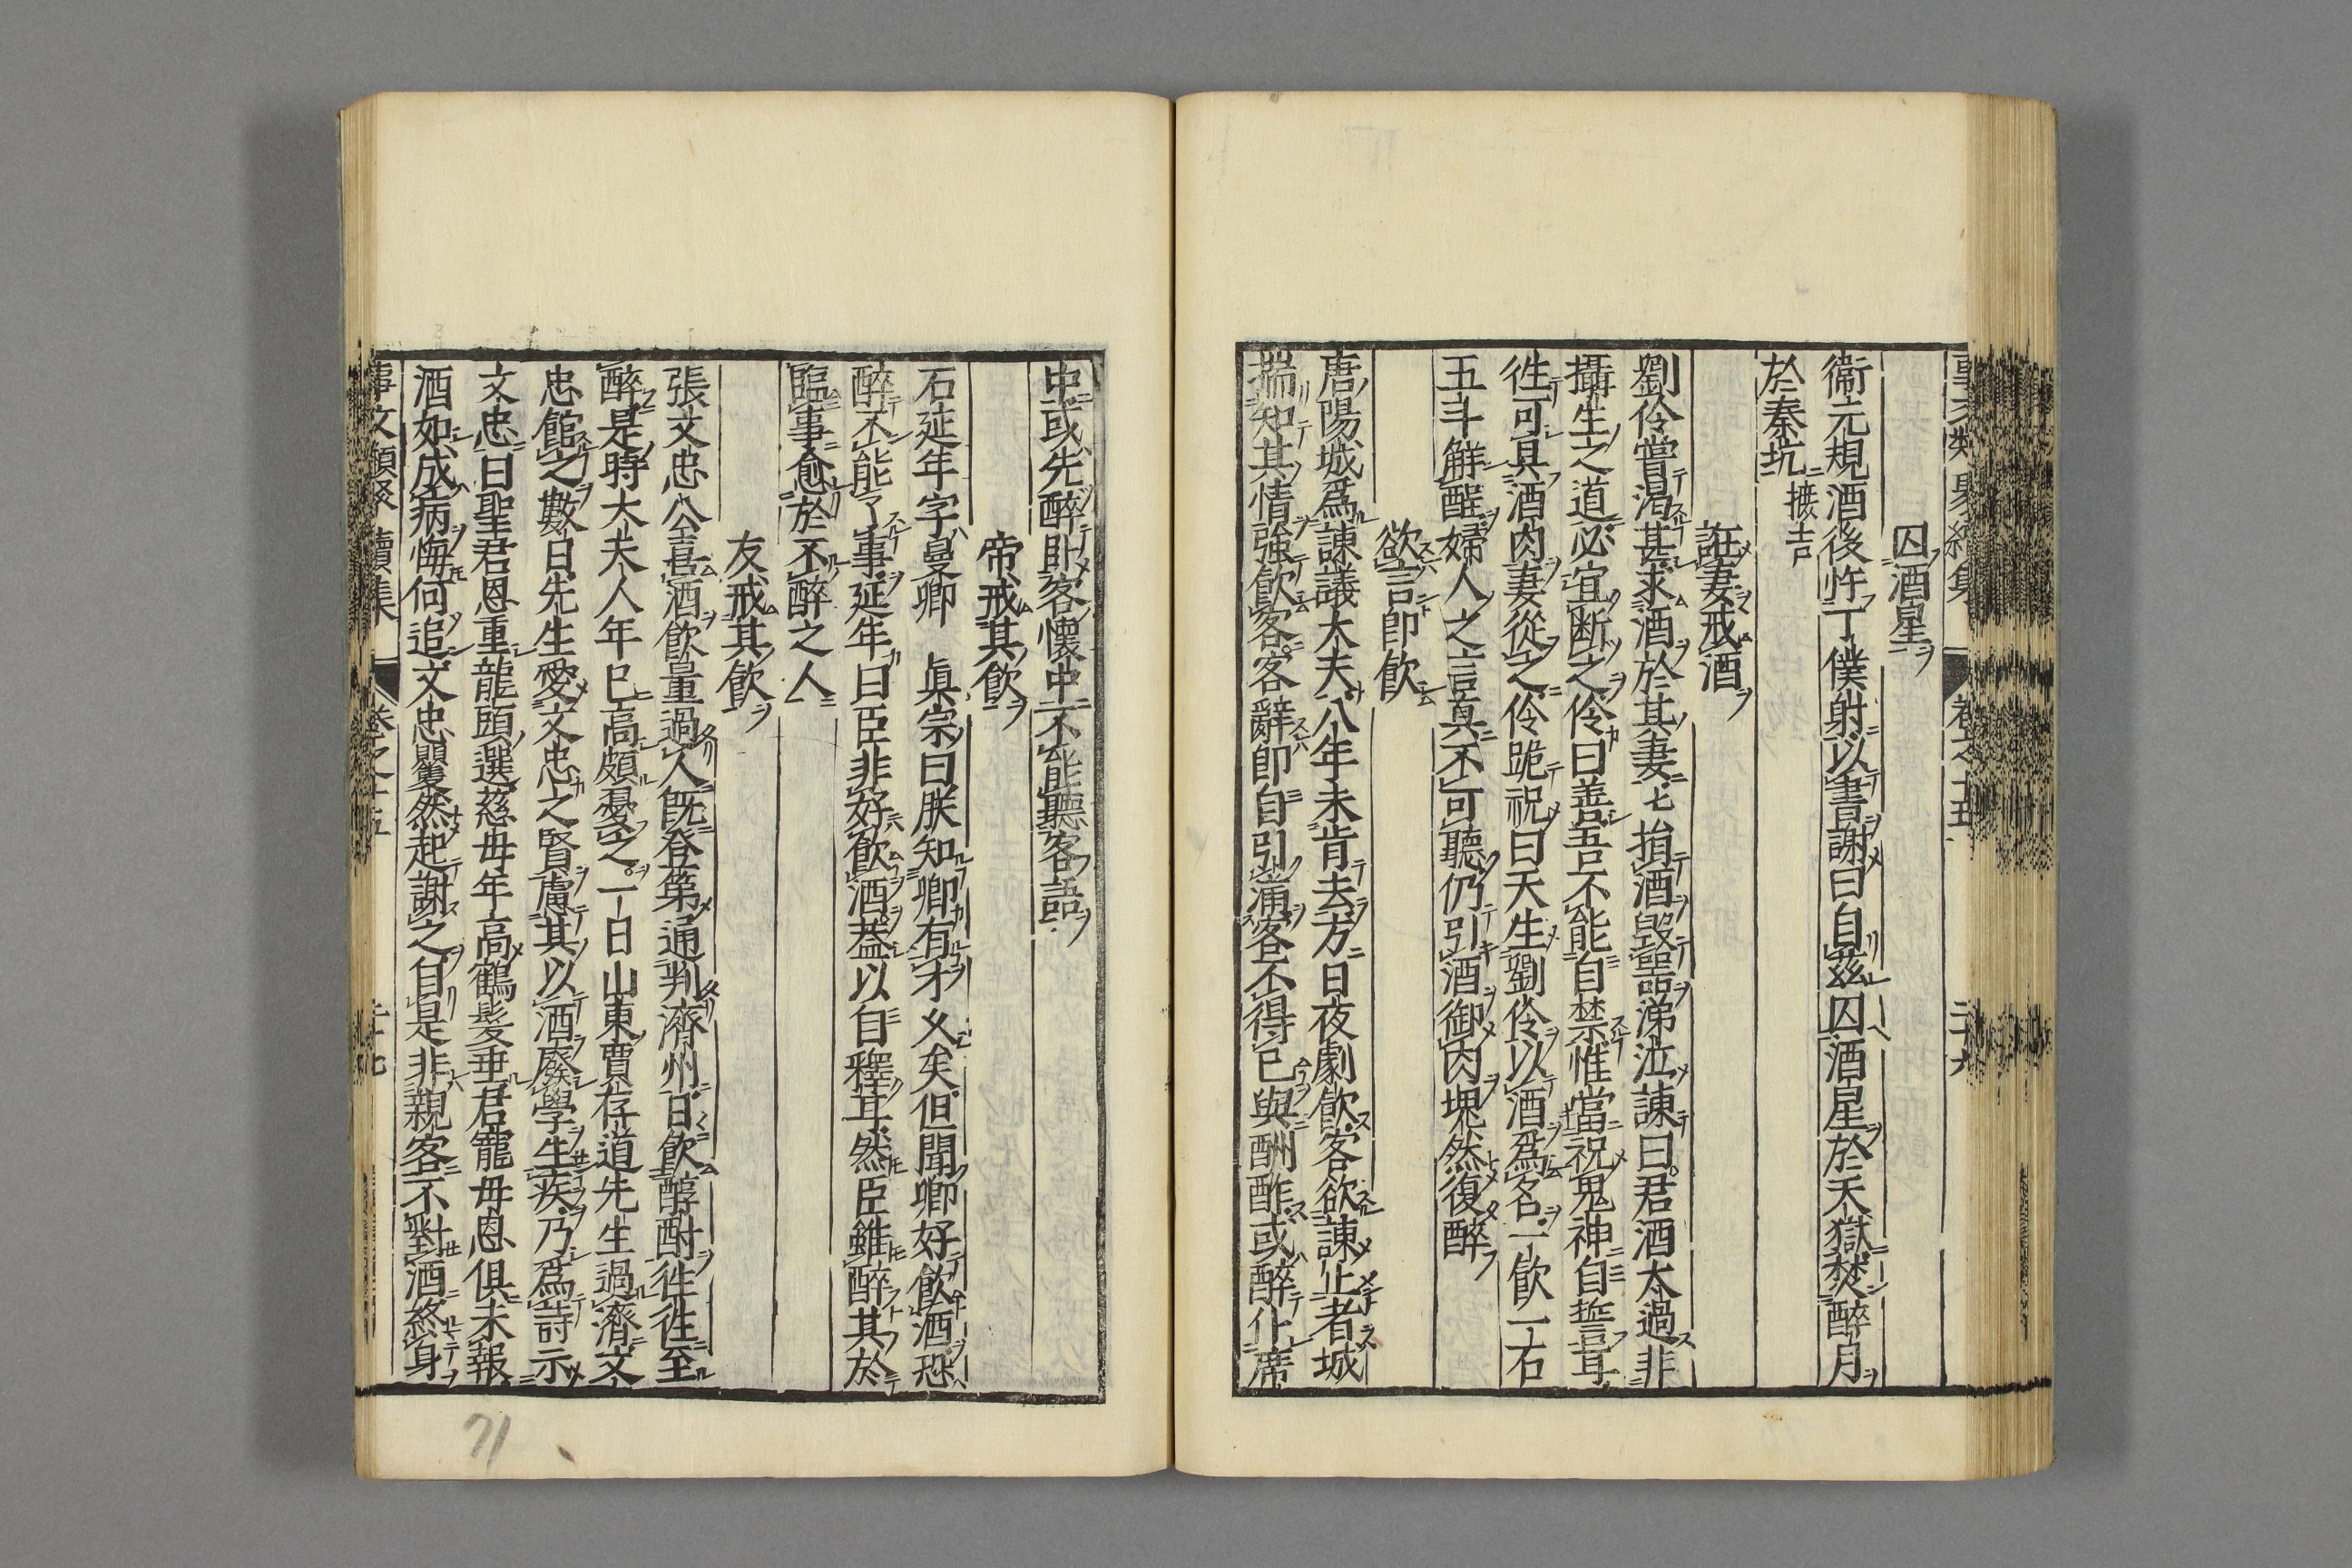 囚酒星
衞元規酒後忤丁僕射以書謝曰自茲囚酒星於天獄焚醉月
於秦坑 摭言
誑妻戒酒
劉伶嘗渴甚求酒於其妻妻捐酒毀器涕泣諌曰君酒太過非
攝生之道必宜断之伶曰善吾不能自禁惟當祝鬼神自誓耳
徃可具酒肉妻從之伶跪祝曰天生劉伶以酒爲名一飮一石
五斗解酲婦人之言真不可聽仍引酒御肉塊然復醉
欲言即飮
唐陽城爲諌議大夫八年未肯去方日夜劇飮客欲諌止者城
揣知其情強飮客客辭即自引滿客不得已與酬酢或醉仆席
中或先醉卧客懷中不能聽客語
帝戒其飮
石延年字曼卿 眞宗曰朕知卿有才乂矣但聞卿好飮酒恐
醉不能了事延年曰臣非好飮酒葢以自釋耳然臣雖醉其於
臨事愈於不醉之人
友戒其飮
張文忠公喜酒飮量過人既登第通判濟州日飮醇酎徃徃至
醉是時大夫人年已高頗憂之一日山東賈存道先生過濟文
忠館之數日先生愛文忠之賢慮其以酒廢學生疾乃爲詩示
文忠曰聖君恩重龍頭選慈母年高鶴髪垂君寵母恩俱未報
酒如成病悔何追文忠矍然起謝之自是非親客不對酒終身
事文類聚 續集 卷之十五